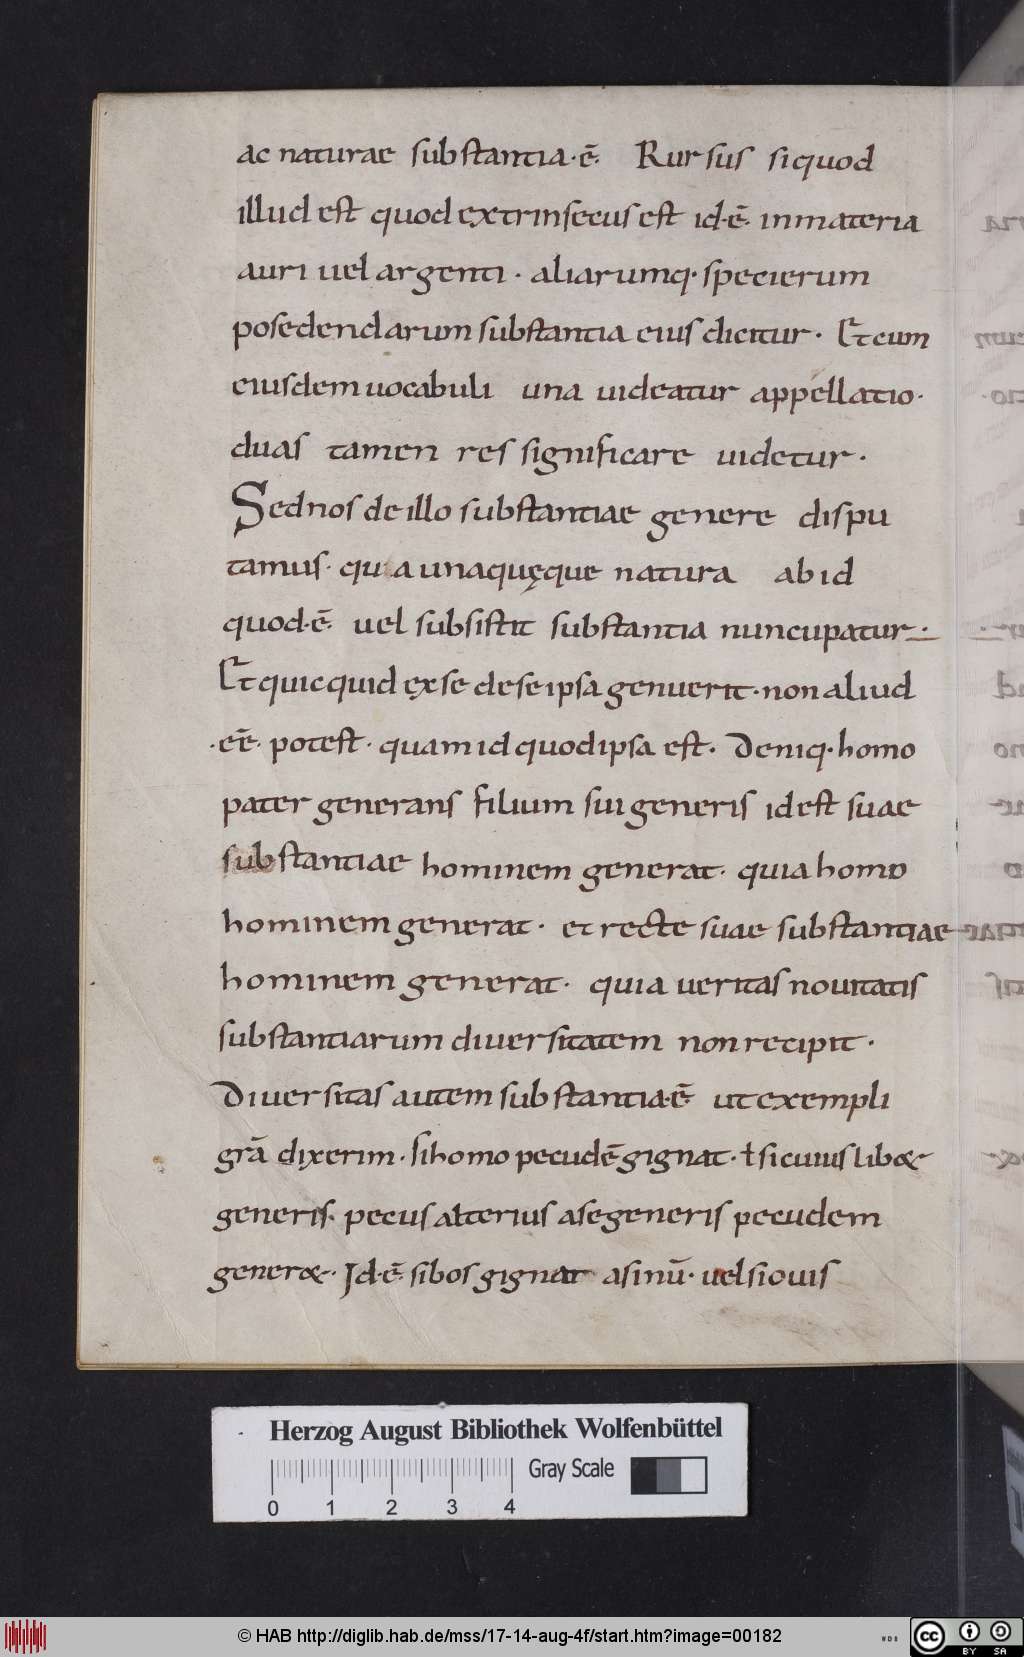 ac naturae substantia·ē· Rursus si quod
illud est quod extrinsecus est id·ē· in materia
auri uel argenti · aliarumq· specierum
posedendarum substantia eius dicitur · Et cum
eiusdem uocabuli una uideatur appellatio·
duas tamen res significare uidetur ·
Sed nos de illo substantiae genere dispu
tamus· qua unaquęque natura ab id
quod·ē· uel subsistit substantia nuncupatur·
Et quicquid ęx se de se ipsa genuerit·non aliud
·eē· potest · quam id quod ipsa est· Deniq·homo
pater generans filium sui generis id est suae
substantiae hominem generat· quia homo
hominem generat · et recte suae substantiae
hominem generat· quia ueritas nouitatis
substantiarum diuersitatem non recipit ·
Diuersitas autem substantia·ē· ut exempli
grā dixerim · si homo pecudē gignat · ł si cuius lib&
generis· pecus alterius a se generis pecudem
gener&· Id·ē· si bos gignat asinū· uel si ouis
Herzog August Bibliothek Wolfenbüttel
Gray Scale
0 1 2 3 4
© HAB http://diglib.hab.de/mss/17-14-aug-4f/start.htm?image=00182
WDB
cc BY SA